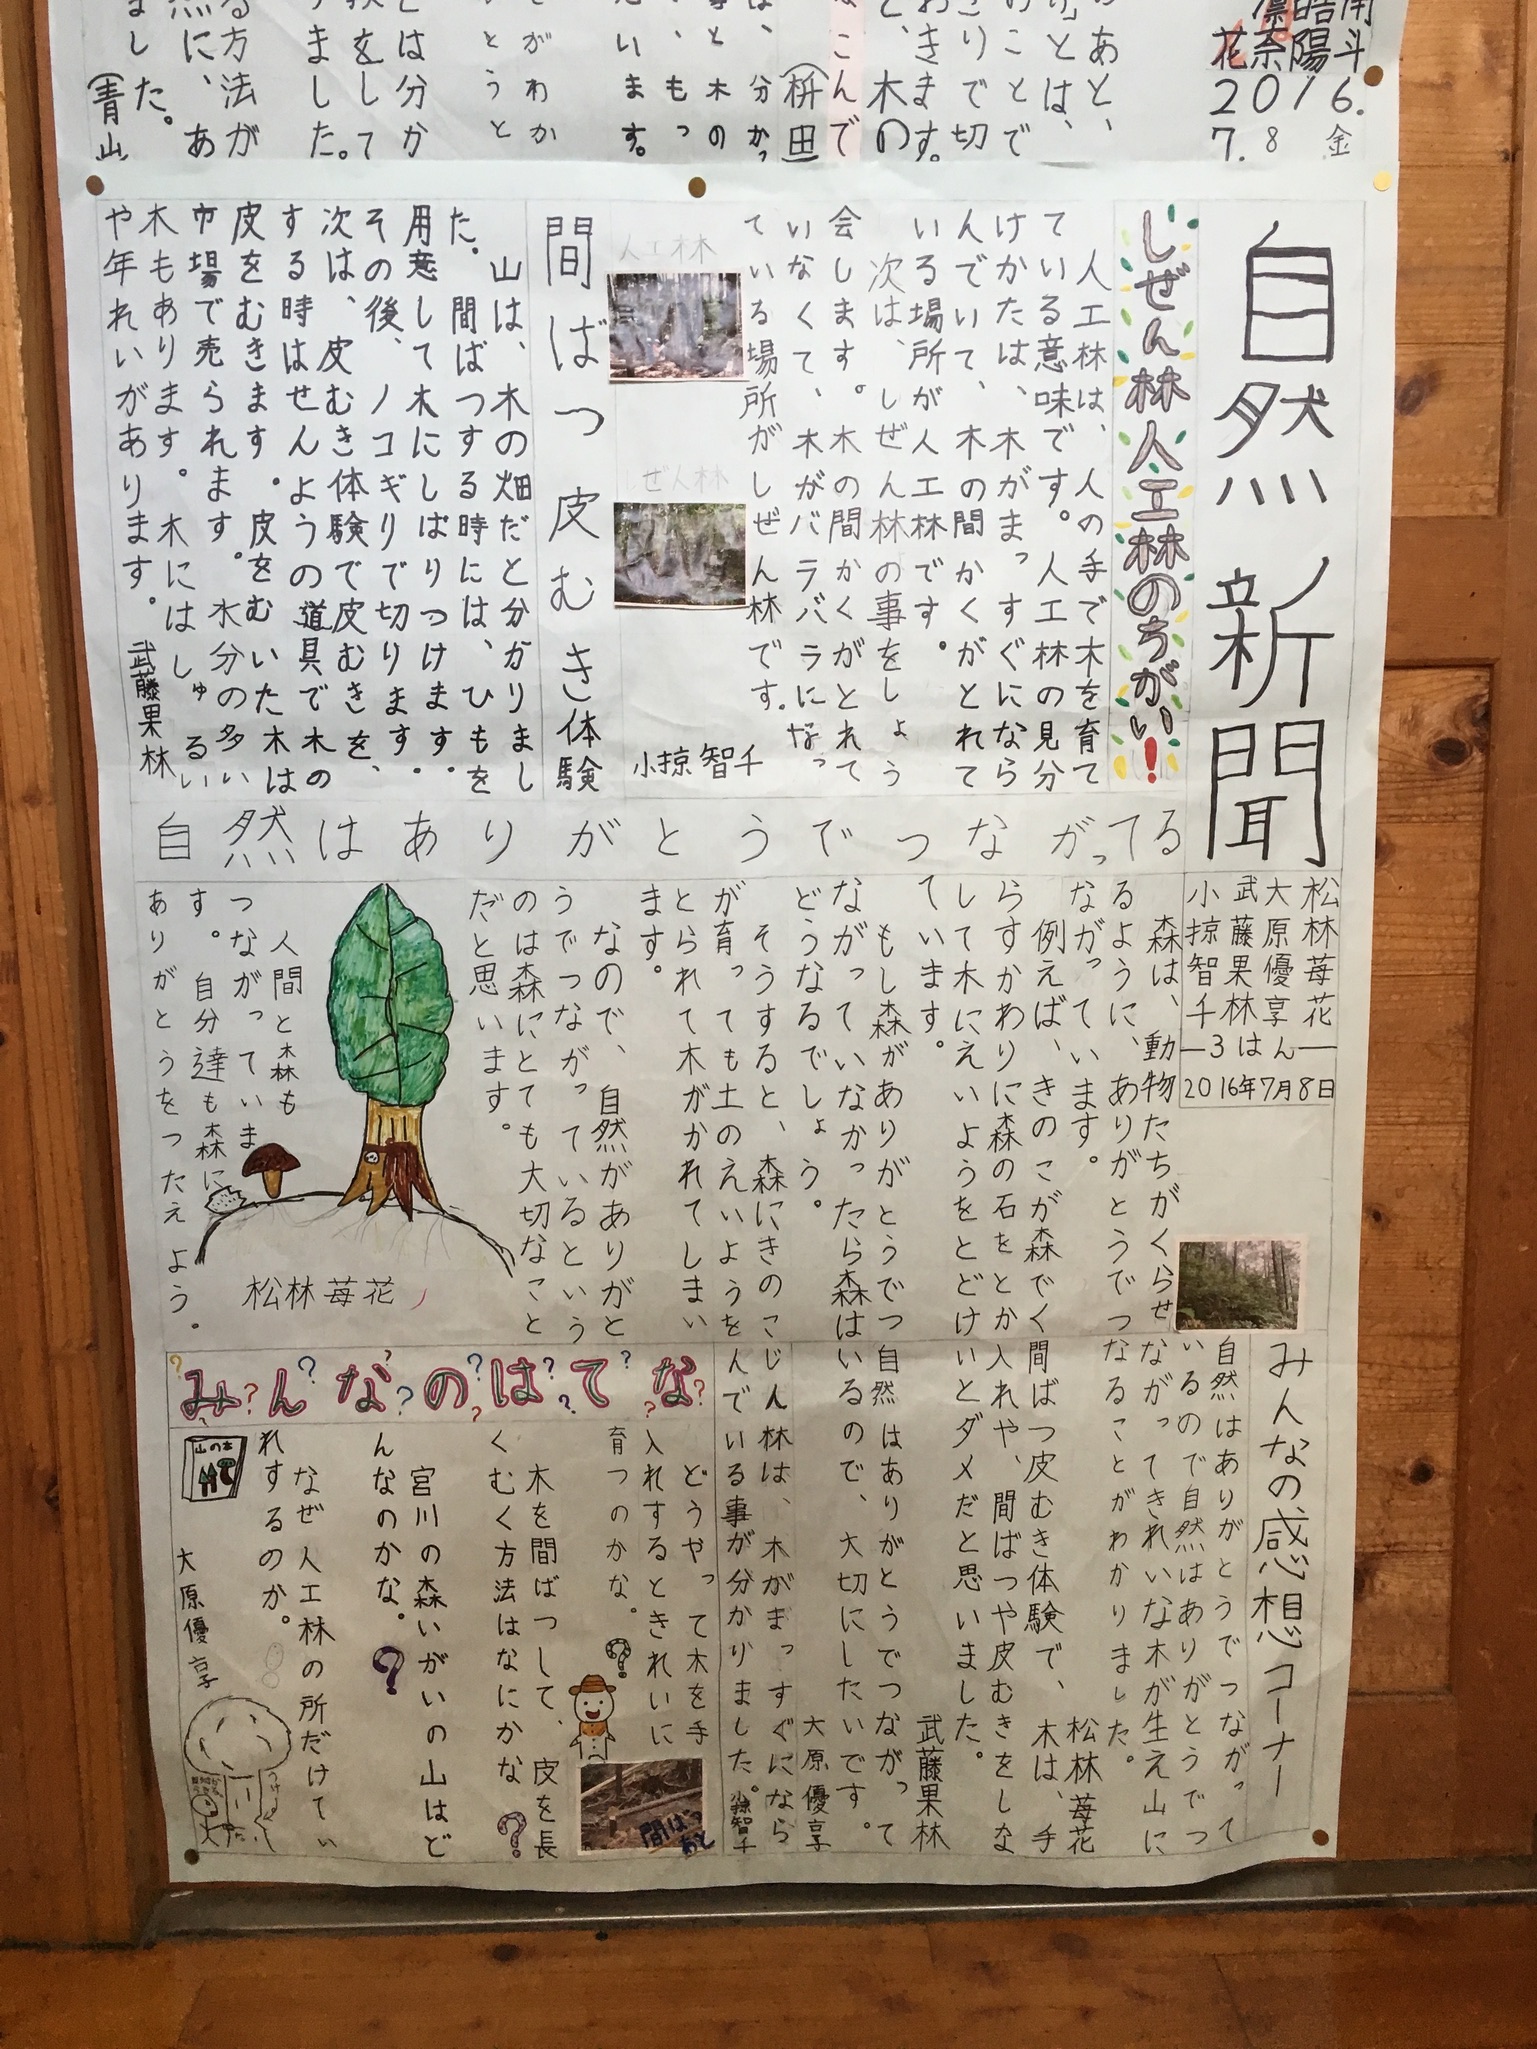 南斗
皓陽
凛奈
花
2016.
7.8金
のあと、
とは、
のことで
きりで切
おきます。
と、木の
こんで
(枡田)
は、分かっ
事と木の
、もっ
います。
がわか
とうと
とは分か
をして
ました。
る方法が
然に、あ
ました。
(青山)
自然新聞
松林苺花
大原優享
武藤果林
小掠智千
―3はん―
2016年7月8日
しぜん林人工林のちがい!
人工林は、人の手で木を育て
ている意味です。人工林の見分
けかたは、木がまっすぐになら
んでいて、木の間かくがとれて
いる場所が人工林です。
次は、しぜん林の事をしょう
会します。木の間かくがとれて
いなくて、木がバラバラになっ
ている場所がしぜん林です。
小掠智千
人工林
しぜん林
間ばつ皮むき体験
山は、木の畑だと分かりまし
た。間ばつする時には、ひもを
用意して木にしばりつけます。
その後、ノコギリで切ります。
次は、皮むき体験で皮むきを、
する時はせんようの道具で木の
皮をむきます。皮をむいた木は
市場で売られます。水分の多い
木もあります。木にはしゅるい
や年れいがあります。
武藤果林
自然はありがとうでつながってる
森は、動物たちがくらせ
るように、ありがとうでつ
ながっています。
例えば、きのこが森でく
らすかわりに森の石をとか
して木にえいようをとどけ
ています。
もし森がありがとうでつ
ながっていなかったら森は
どうなるでしょう。
そうすると、森にきのこ
が育っても土のえいようを
とられて木がかれてしまい
ます。
なので、自然がありがと
うでつながっているという
のは森にとても大切なこと
だと思います。
人間と森も
つながっていま
す。自分達も森に
ありがとうをつたえよう。
松林苺花
みんなの感想コーナー
自然はありがとうでつながって
いるので自然はありがとうでつ
ながってきれいな木が生え山に
なることがわかりました。
松林苺花
間ばつ皮むき体験で、木は、手
入れや、間ばつや皮むきをしな
いとダメだと思いました。
武藤果林
自然はありがとうでつながって
いるので、大切にしたいです。
大原優享
じん林は、木がまっすぐになら
んでいる事が分かりました。
小掠智千
みんなのはてな
どうやって木を手
入れするときれいに
育つのかな。?
木を間ばつして、皮を長
くむく方法はなにかな?
宮川の森いがいの山はど
んなのかな。?
なぜ人工林の所だけてい
れするのか。
大原優享
山の本
間ばつ
あと